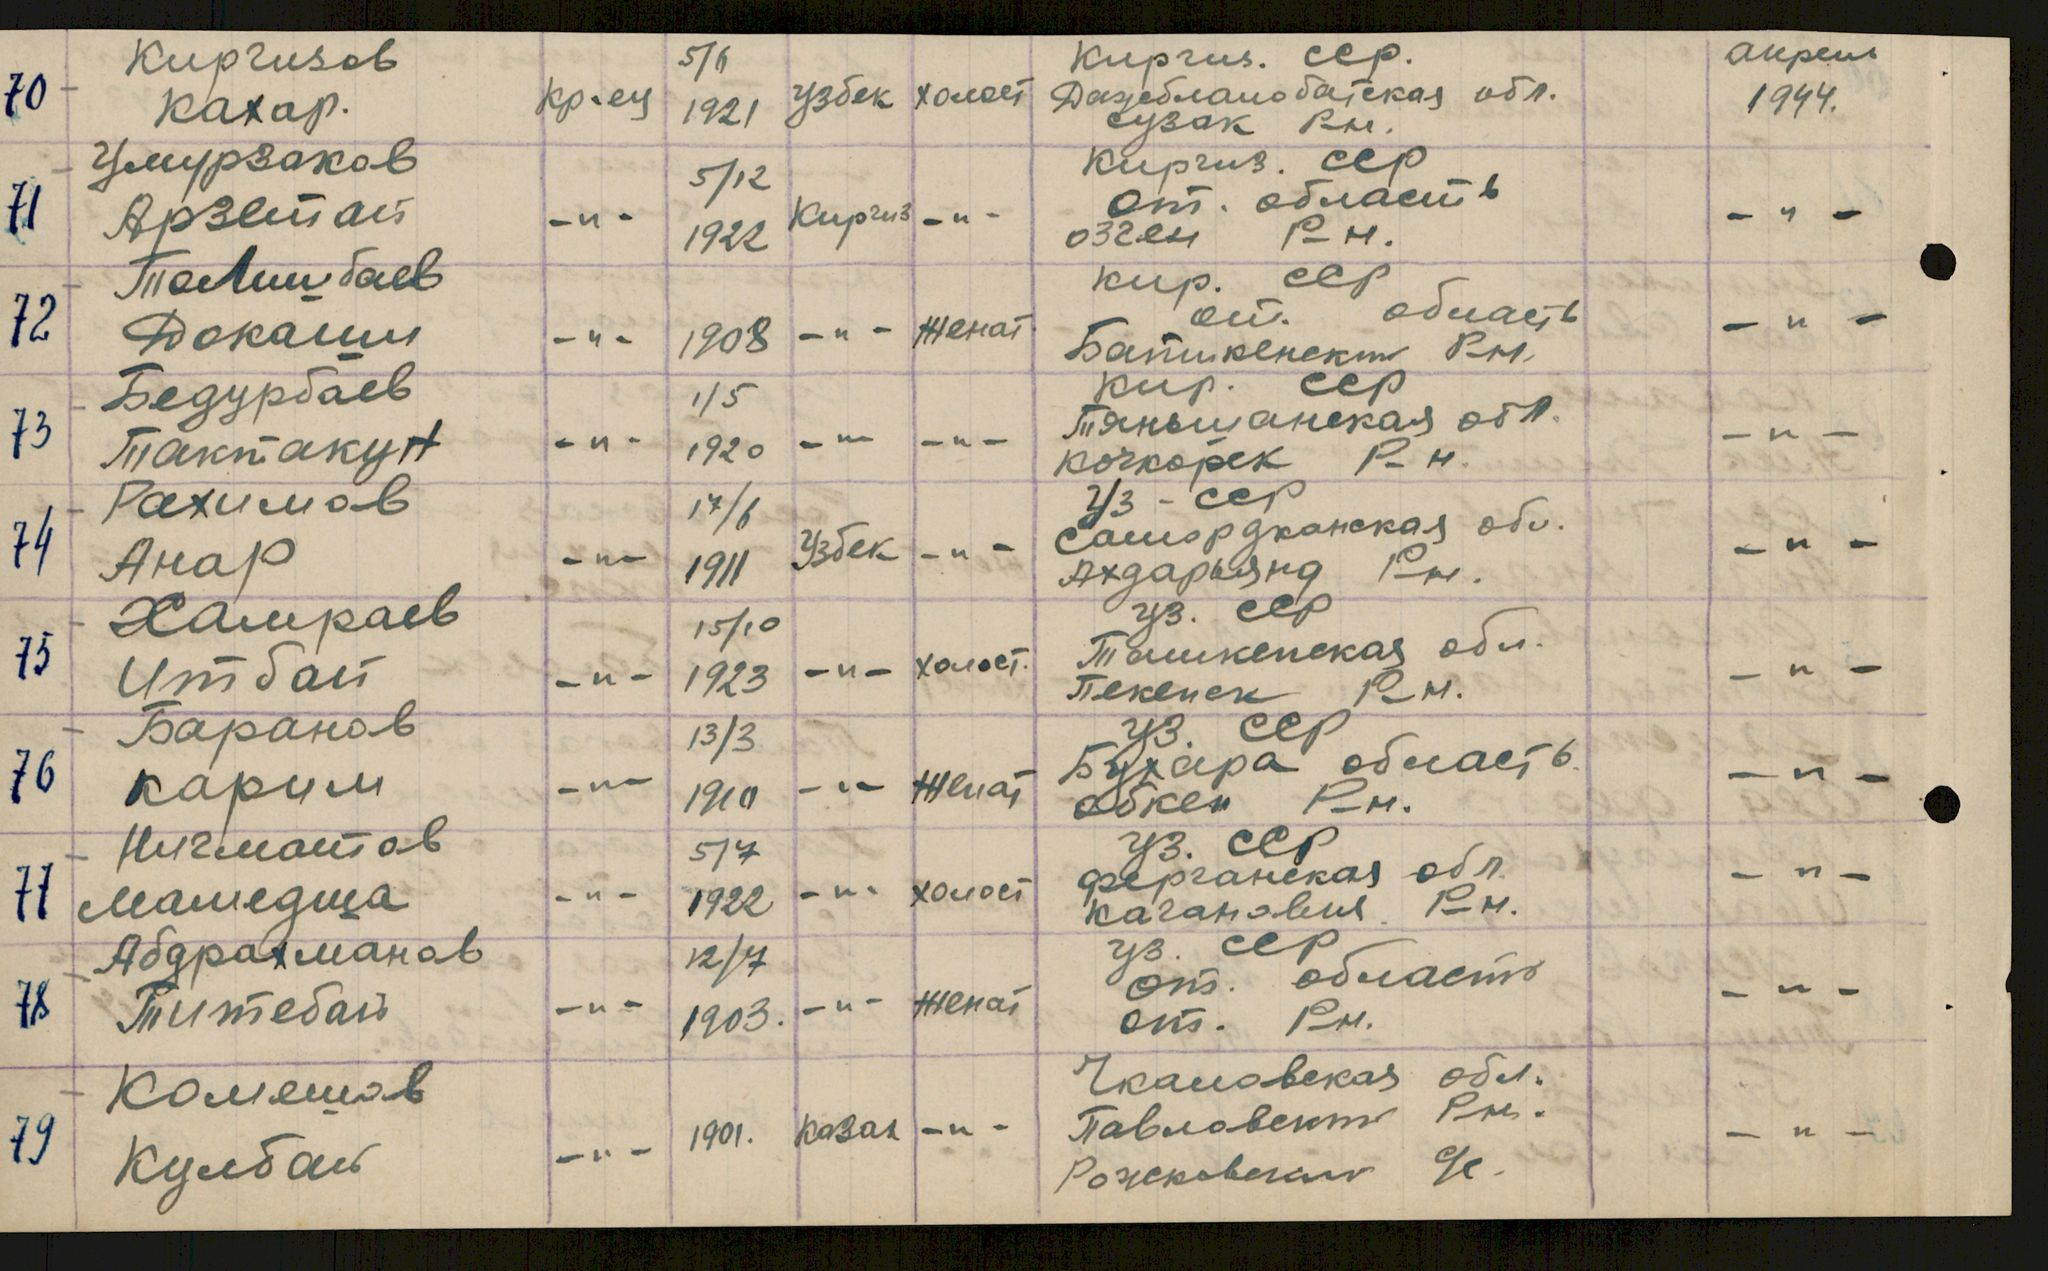 Киргизов 5/6 Киргиз. ССР. апрель
70 Кахар. кр-ец 1921 Узбек холост Джеблалобатская обл. 1944.
сузак Р-н.
Умурзаков 5/12 Киргиз. ССР
71 Арзетай -"- 1922 Киргиз -"- ош. область -"-
озген Р-н.
Толишбаев Кир. ССР
72 Докаши -"- 1908 -"- Женат ош. область -"-
Баткенски Р-н.
Бедурбаев 1/5 Кир. ССР
73 Тактакун -"- 1920 -"- -"- Тяньшанская обл. -"-
Кочкорек Р-н.
Рахимов 17/6 Уз-ССР
74 Анар -"- 1911 Узбек -"- Самордканская обл. -"-
Ахдарьянд Р-н.
Хамраев 15/10 Уз. ССР
75 Итбай -"- 1923 -"- холост. Ташкенская обл. -"-
Пекенек Р-н.
Баранов 13/3 Уз. ССР
76 Карим -"- 1910 -"- Женат Бухара область. -"-
обкен Р-н.
Нигматов 5/7 Уз. ССР
77 Мамедша -"- 1922 -"- холост Ферганская обл. -"-
Кагановия Р-н.
Абдрахманов 12/7 Уз. ССР
78 Титебай -"- 1903. -"- Женат ош. область -"-
ош. Р-н.
Комешов Чкаловская обл.
79 Кулбай -"- 1901. Казах -"- Павловски Р-н. -"-
Рожковски